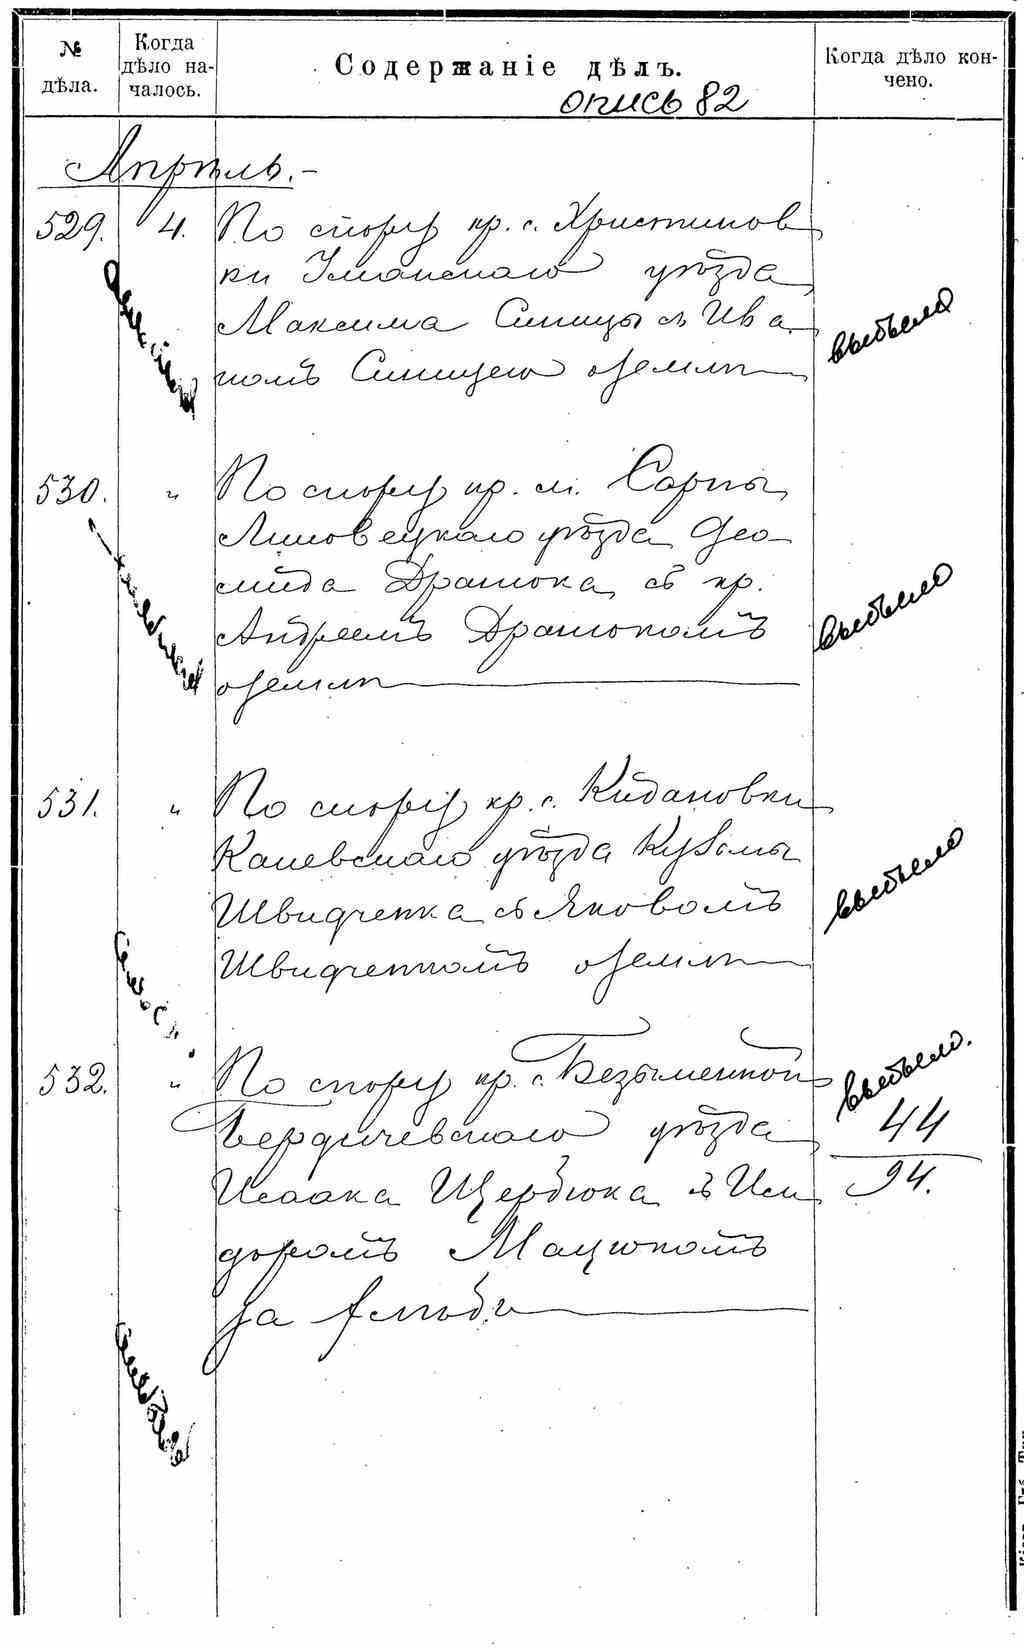 № дѣла.
Когда дѣло началось.
Содержаніе дѣлъ.
Когда дѣло кончено.
опись 82
Апрѣль.-
529. 4. По спору кр. с. Христинов
ки Уманскаго уѣзда
Максима Синицы съ Ива
номъ Синицею о землѣ
выбыло
530. " По спору кр. м. Сарны
Липовецкаго уѣзда Део
мида Дранюка съ кр.
Андреемъ Дранюкомъ
о землѣ
выбыло
531. " По спору кр. с. Кидановки
Каневскаго уѣзда Кузьмы
Швидченка съ Яковомъ
Швидченкомъ о землѣ
выбыло
532. " По спору кр. с. Безыменной
Бердичевскаго уѣзда
Исаака Щербюка съ Иси
доромъ Мацюкомъ
за
выбыло.
44
94.